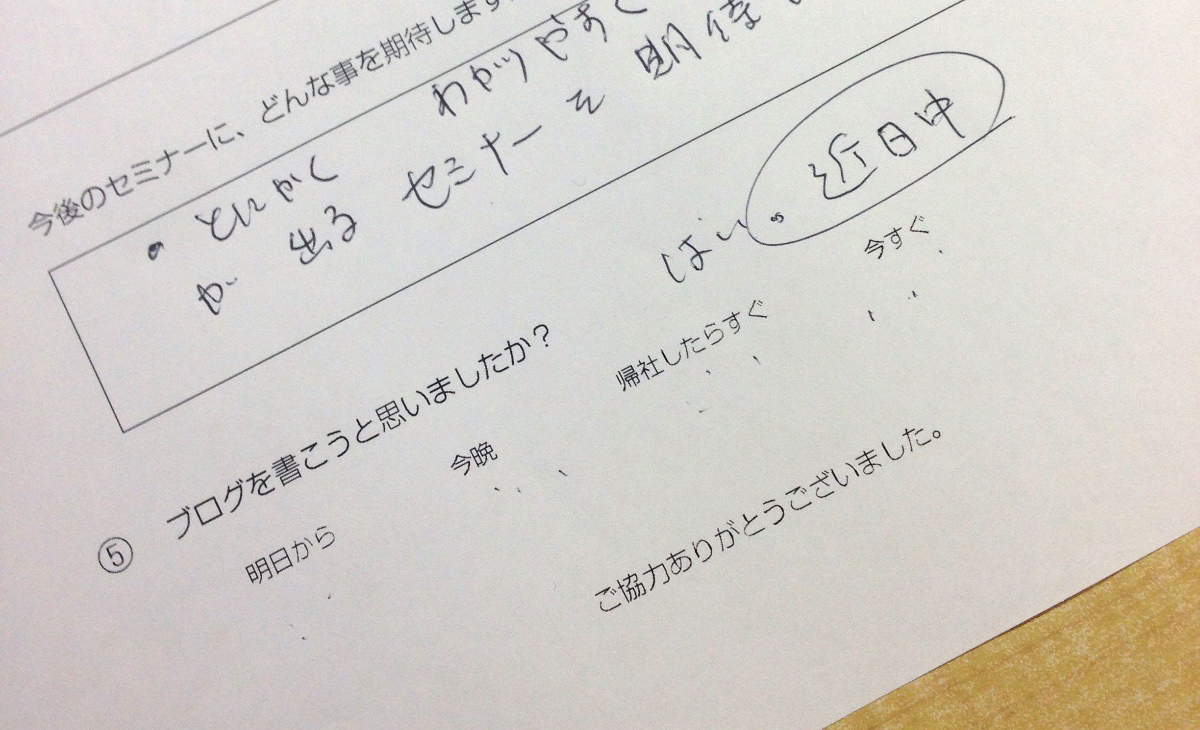 今後のセミナーに、どんな事を期待します
・とにかく わかりやすく
が 出る セミナーを 期待
⑤ ブログを書こうと思いましたか? はい。近日中
明日から 今晩 帰社したらすぐ 今すぐ
ご協力ありがとうございました。